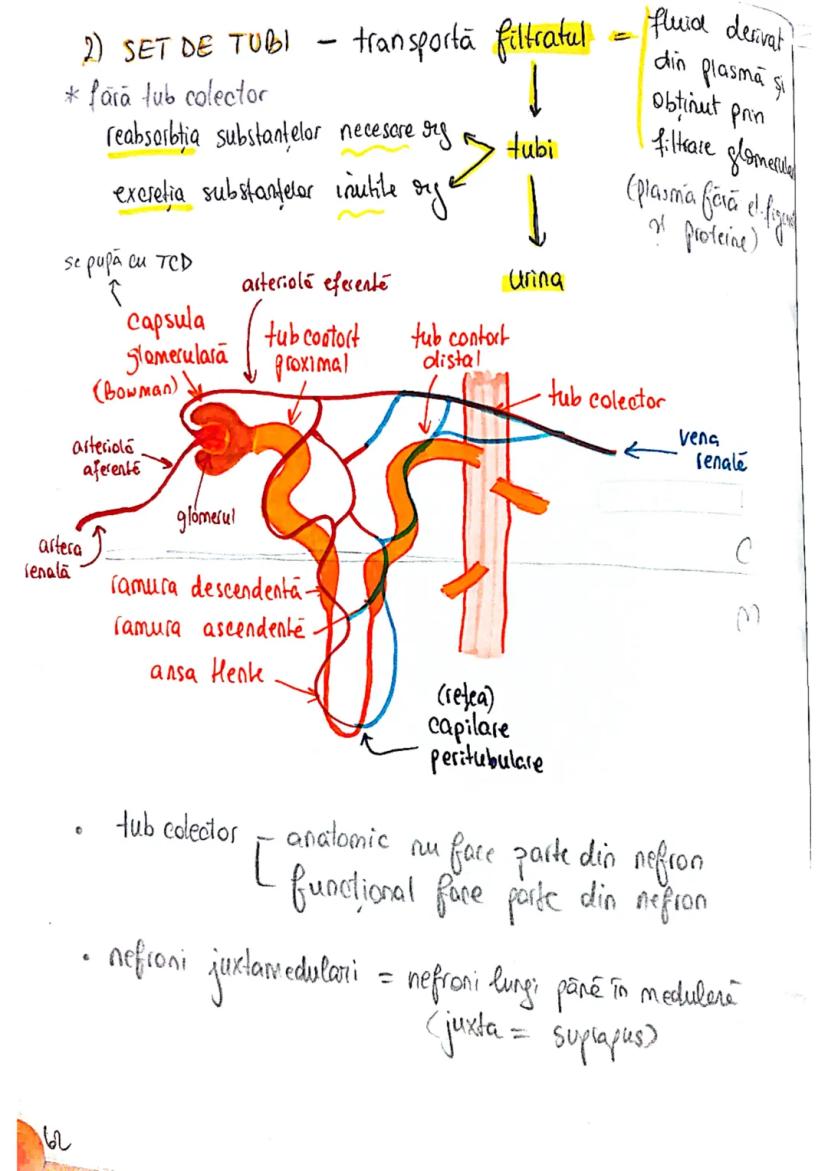 2) SET DE TUBI - transportă filtratul = fluid derivat
din plasmă și
obținut prin
filtrare glomerula
(plasma fără el. figur
și proteine)
* fără tub colector
reabsorbția substanțelor necesare org
tubi
excreția substanțelor inutile org
urina
se pupă cu TCD
arteriolă eferentă
capsula
glomerulară
(Bowman)
tub contort
proximal
tub contort
distal
tub colector
vena
renală
arteriolă
aferentă
glomerul
artera
renală
C
M
ramura descendentă
ramura ascendentă
ansa Henle
(rețea)
capilare
peritubulare
• tub colector
anatomic nu face parte din nefron
funcțional face parte din nefron
• nefroni juxtamedulari = nefroni lungi până în medulară
(juxta = suprapus)
62